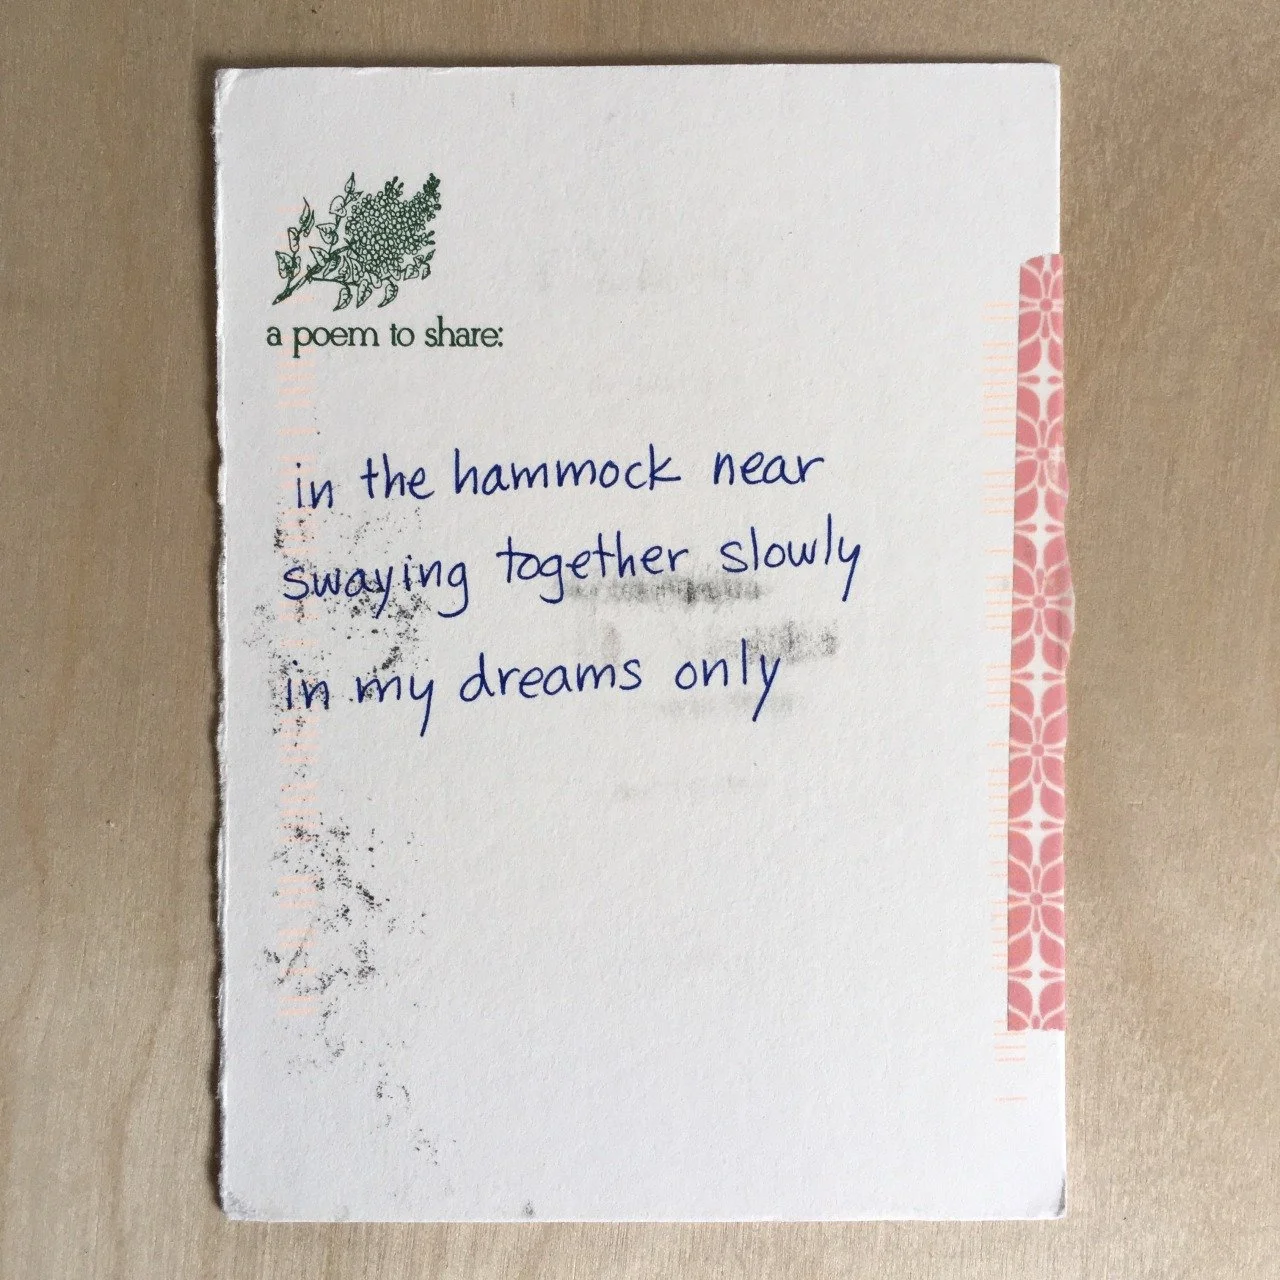 a poem to share:
in the hammock near
swaying together slowly
in my dreams only